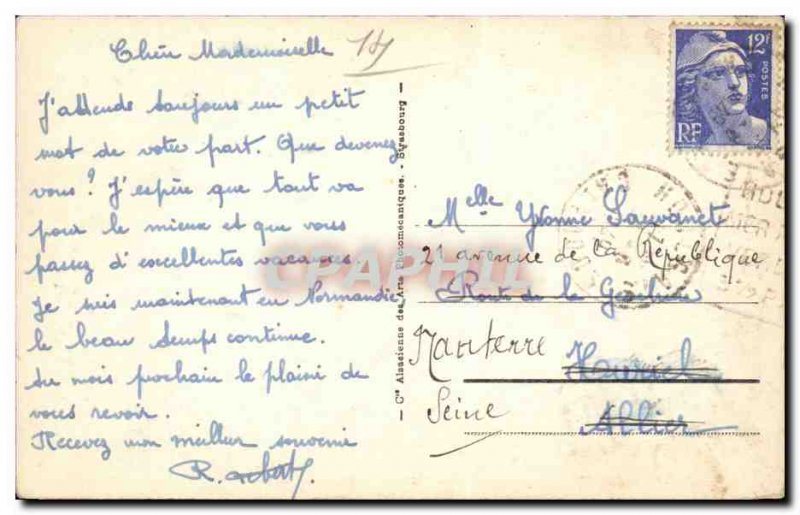 Chère Mademoiselle
J'attends toujours un petit
mot de votre part. Que devenez
vous? J'espère que tout va
pour le mieux et que vous
passez d'excellentes vacances.
Je suis maintenant en Normandie
le beau temps continue.
Au mois prochain le plaisir de
vous revoir.
Recevez mon meilleur souvenir
R.
Cie Alsacienne des Arts Photomécaniques. - Strasbourg
12F
POSTES
RF
Melle Yvonne Sauvanet
21 avenue de la République
Route de la
Nanterre
Seine
Allier
CPAPHIL